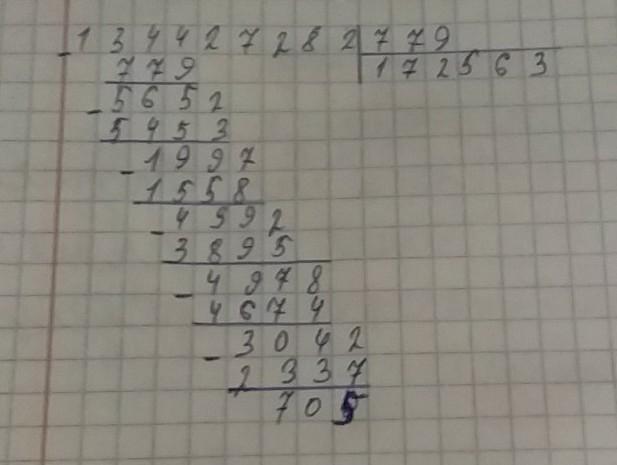 -134427282 779
779 172563
-5652
5453
-1997
1558
-4392
3895
-4978
4674
-3042
2337
705